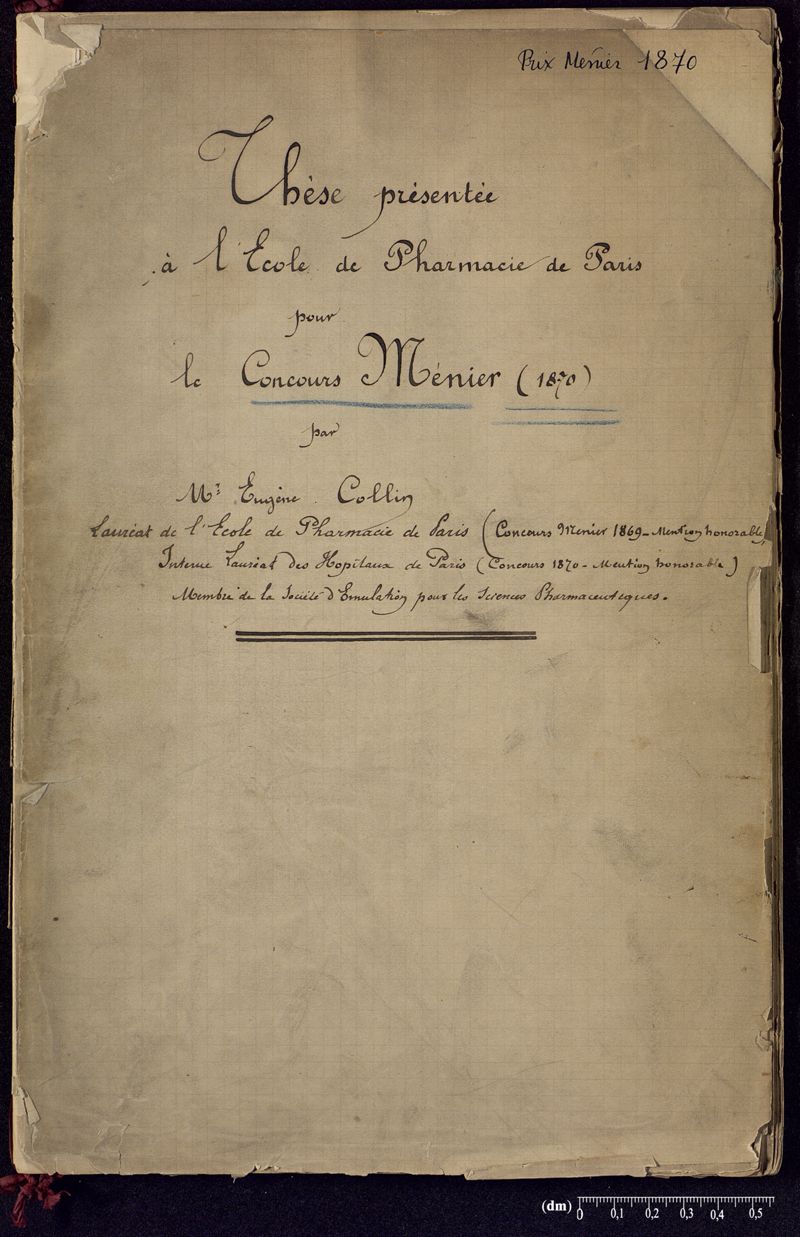 Prix Menier 1870
Thèse présentée
à l'Ecole de Pharmacie de Paris
pour
le Concours Ménier (1870)
par
Mr Eugène Collin
Lauréat de l'Ecole de Pharmacie de Paris (Concours Menier 1869 - Mention honorable)
Interne Lauréat des Hopitaux de Paris (Concours 1870 - Mention honorable)
Membre de la Société d'Emulation pour les Sciences Pharmaceutiques.
(dm) 0 0,1 0,2 0,3 0,4 0,5